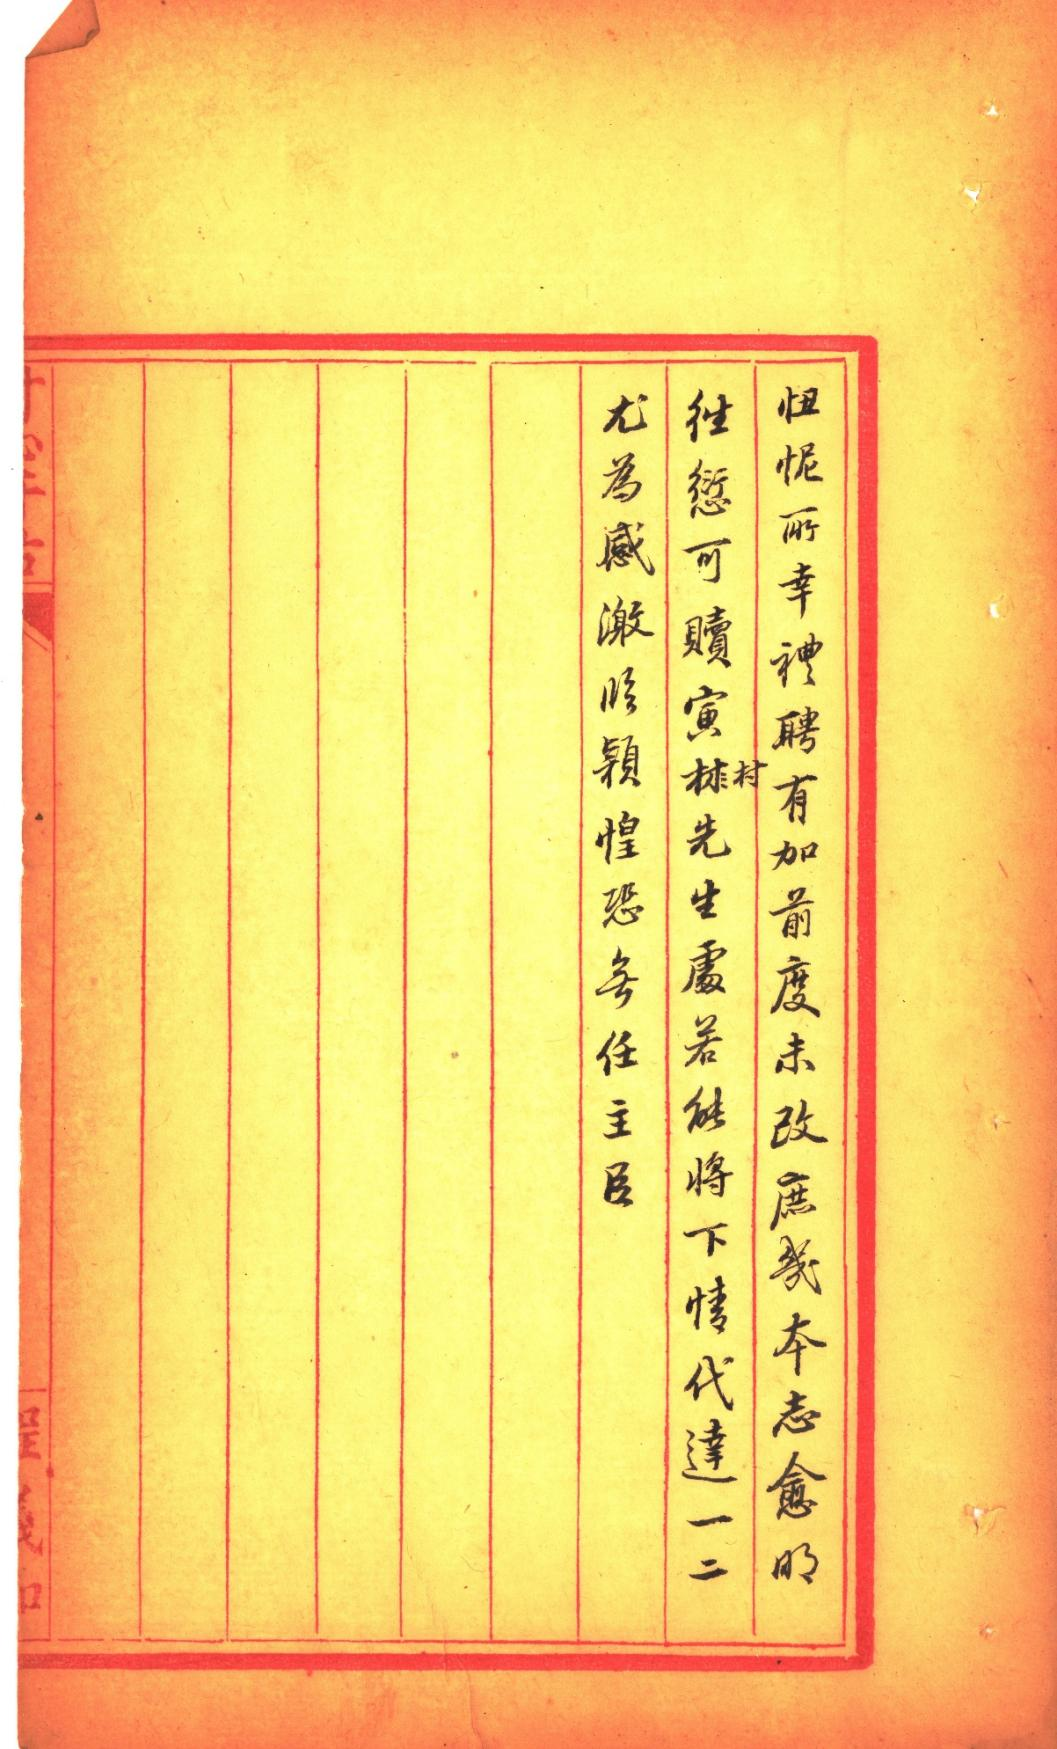 忸怩所幸禮聘有加前度未改庶幾本志愈明
徃愆可贖寅林先生處若能將下情代達一二
村
尤為感激臨穎惶恐無任主臣